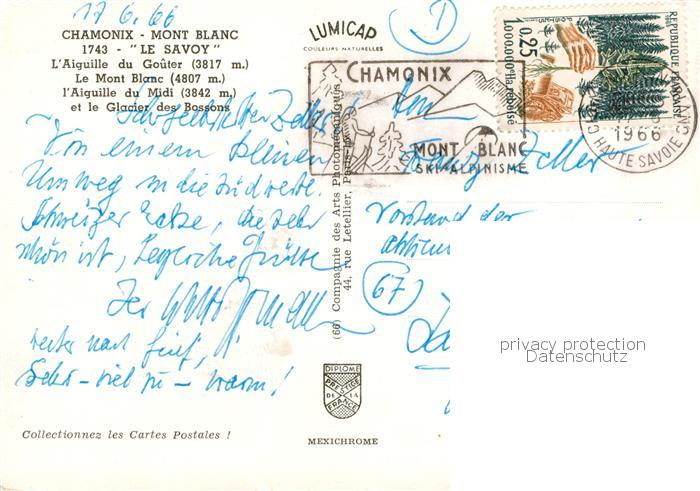 17.6.66
CHAMONIX - MONT BLANC
1743 - "LE SAVOY"
L'Aiguille du Goûter (3817 m.)
Le Mont Blanc (4807 m.)
l'Aiguille du Midi (3842 m.)
et le Glacier des Bossons
Von einem kleinen
Umweg in die Südweste
Schweizer Ecke, die sehr
schön ist, Grüße
Ihr
weiter nach
Sehr - viel zu - warm!
Collectionnez les Cartes Postales !
LUMICAP
COULEURS NATURELLES
(66) Compagnie des Arts Photomécaniques
44, rue Letellier, Paris
DIPLOME
PRESTIGE
DE LA
FRANCE
MEXICHROME
CHAMONIX
MONT BLANC
SKI-ALPINISME
0,25
1.000.000e ha reboisé
1966
HAUTE SAVOIE
Franz Zeller
Vorstand der
67
privacy protection
Datenschutz